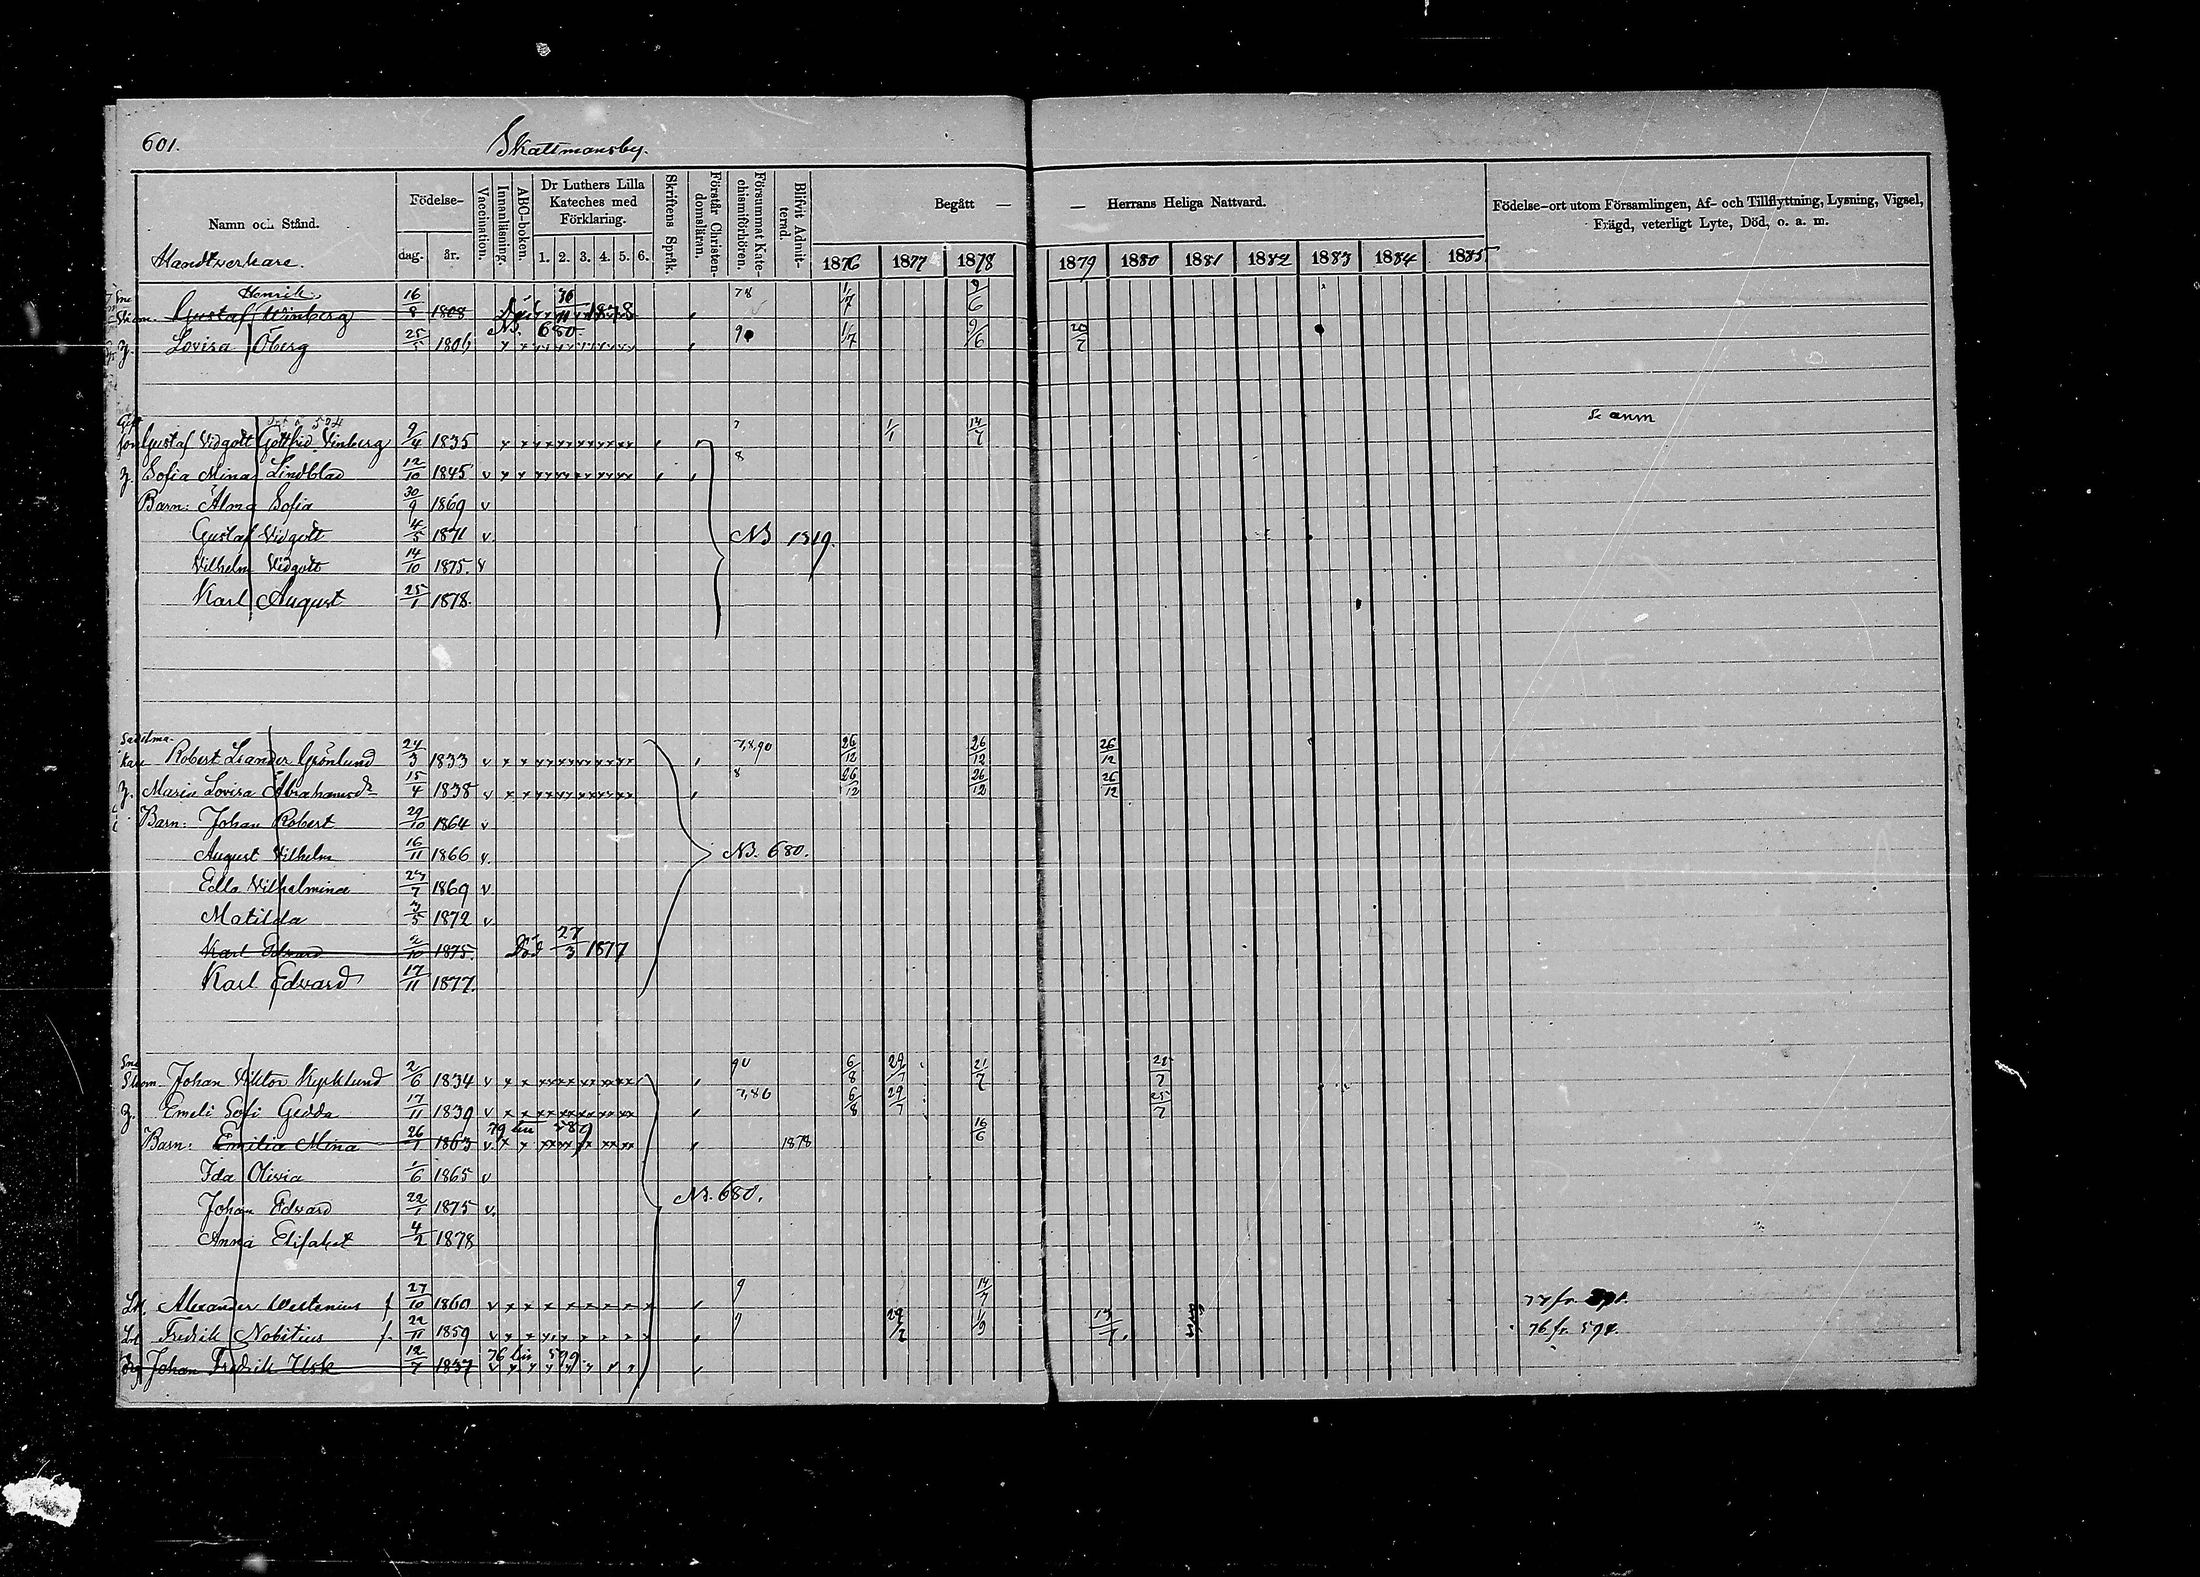 601. Skattmansby.
Namn och Stånd. Födelse- Vaccination. Innanläsning. ABC-boken. Dr Luthers Lilla Kateches med Förklaring. Skriftens Språk. Förstår Christendomsläran. Försummat Katechismiförhören. Blifvit Admitterad. Begått — — Herrans Heliga Nattvard. Födelse-ort utom Församlingen, Af- och Tillflyttning, Lysning, Vigsel, Frägd, veterligt Lyte, Död, o. a. m.
Handtverkare. dag. år. 1. 2. 3. 4. 5. 6. 1876 1877 1878 1879 1880 1881 1882 1883 1884 1885
Henrik
Gustaf Winberg 16/8 1808 Död 30/11 1878 78 1/7 9/6
NB. 680.
Lovisa Öberg 25/5 1806 9 1/7 9/6 20/7
Gustaf Vidgott Gottfrid Vinberg 9/4 1835 7 1/1 14/7 Se anm
Sofia Mina Lindblad 12/10 1845 v 8
Barn: Alma Sofia 30/9 1869 v
Gustaf Vidgott 4/5 1871 v. NB 1319.
Vilhelm Vidgott 14/10 1875. v
Karl August 25/1 1878.
Sadelma-
kare Robert Leander Grönlund 24/3 1833 v 7,8,90 26/12 26/12 26/12
Maria Lovisa Abrahamsdr 15/4 1838 v 8 26/12 26/12 26/12
Barn: Johan Robert 29/10 1864 v
August Vilhelm 16/11 1866 v. NB. 680.
Edla Vilhelmina 27/7 1869 v
Matilda 3/5 1872 v.
Karl Edvard 2/10 1875. Död 27/3 1877
Karl Edvard 17/11 1877.
Johan Viktor Kyrklund 2/6 1834 v 90 6/8 29/7 21/7 25/7
Emeli Sofi Gedda 17/11 1839 v 7,80 6/8 29/7 25/7
79 till 589
Barn: Emilia Mina 26/1 1863 v. 1878 16/6
Ida Olivia 1/6 1865 v
Johan Edvard 22/1 1875 v. NB. 680.
Anna Elisabet 4/2 1878
Alexander Westenius f 27/10 1860 v 9 14/7 77 fr.
Fredrik Nobitius f. 22/11 1859 v 9 29/2 1/9 13/7 76 fr. 591.
76 till 599.
Johan Fredrik Usk 12/7 1837 v